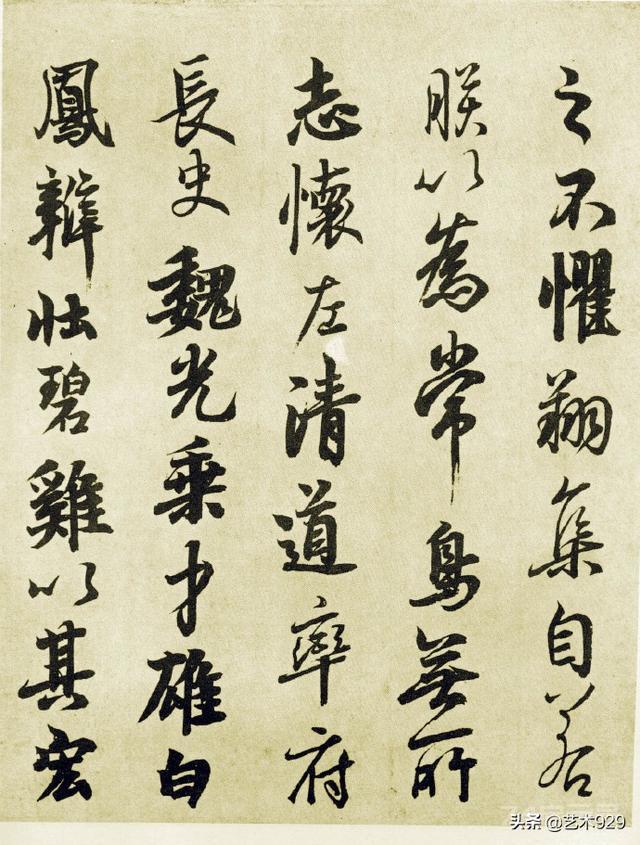 之不懼翔集自若
朕以為常鳥無所
志懷左清道率府
長史魏光乘才雄白
鳳辯壯碧雞以其宏
头条 @艺术929